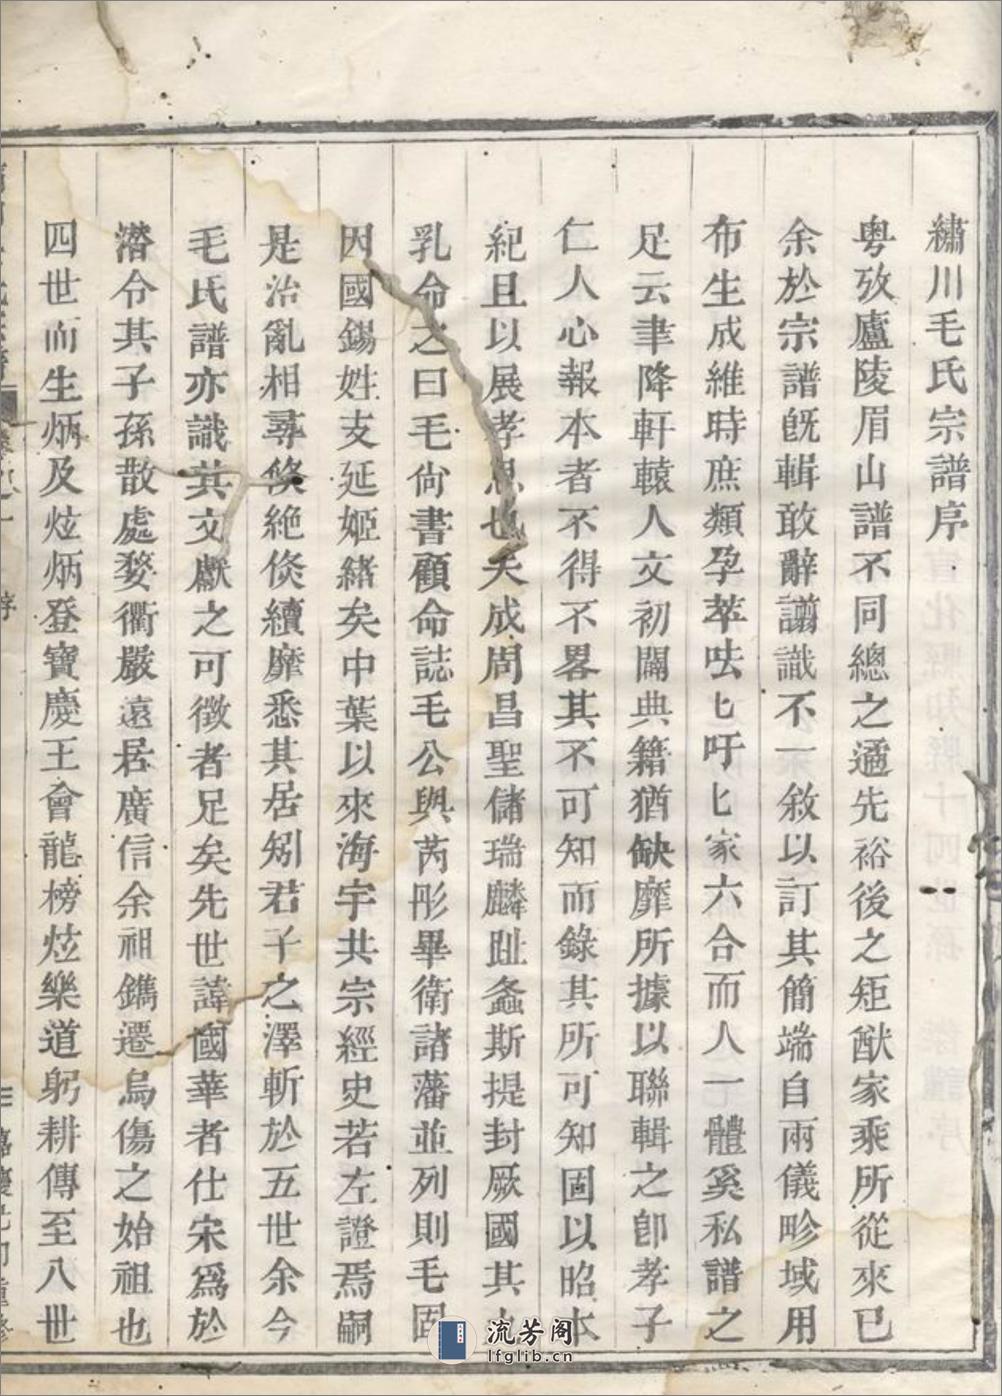 繡川毛氏宗譜序
粵攷廬陵眉山譜不同總之遹先裕後之矩猷家乘所從來已
余於宗譜旣輯敢辭譾識不一敘以訂其簡端自兩儀畛域用
布生成維時庶類孕萃呿匕吁匕家六合而人一體奚私譜之
足云聿降軒轅人文初闢典籍猶缺靡所據以聯輯之卽孝子
仁人心報本者不得不畧其不可知而錄其所可知固以昭本
紀且以展孝思也夫成周昌聖儲瑞麟趾螽斯提封厥國其
乳命之曰毛尙書顧命誌毛公與芮彤畢衛諸藩並列則毛固
因國錫姓支延姬緒矣中葉以來海宇共宗經史若左證焉嗣
是治亂相尋倐絶倐續靡悉其居矧君子之澤斬於五世余今
毛氏譜亦識其文獻之可徴者足矣先世諱國華者仕宋爲於
潛令其子孫散處婺衢嚴遠居廣信余祖鐫遷烏傷之始祖也
四世而生炳及炫炳登寶慶王會龍榜炫樂道躬耕傳至八世
序
流芳阁
lfglib.cn